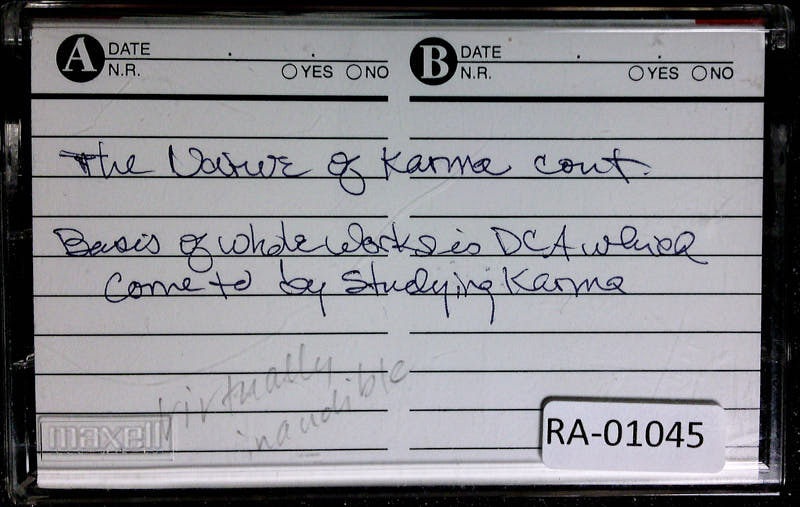 A DATE
N.R. YES NO
B DATE
N.R. YES NO
The Nature of Karma cont.
Basis of whole works is DCA which
Come to by Studying Karma
virtually
inaudible
maxell
RA-01045